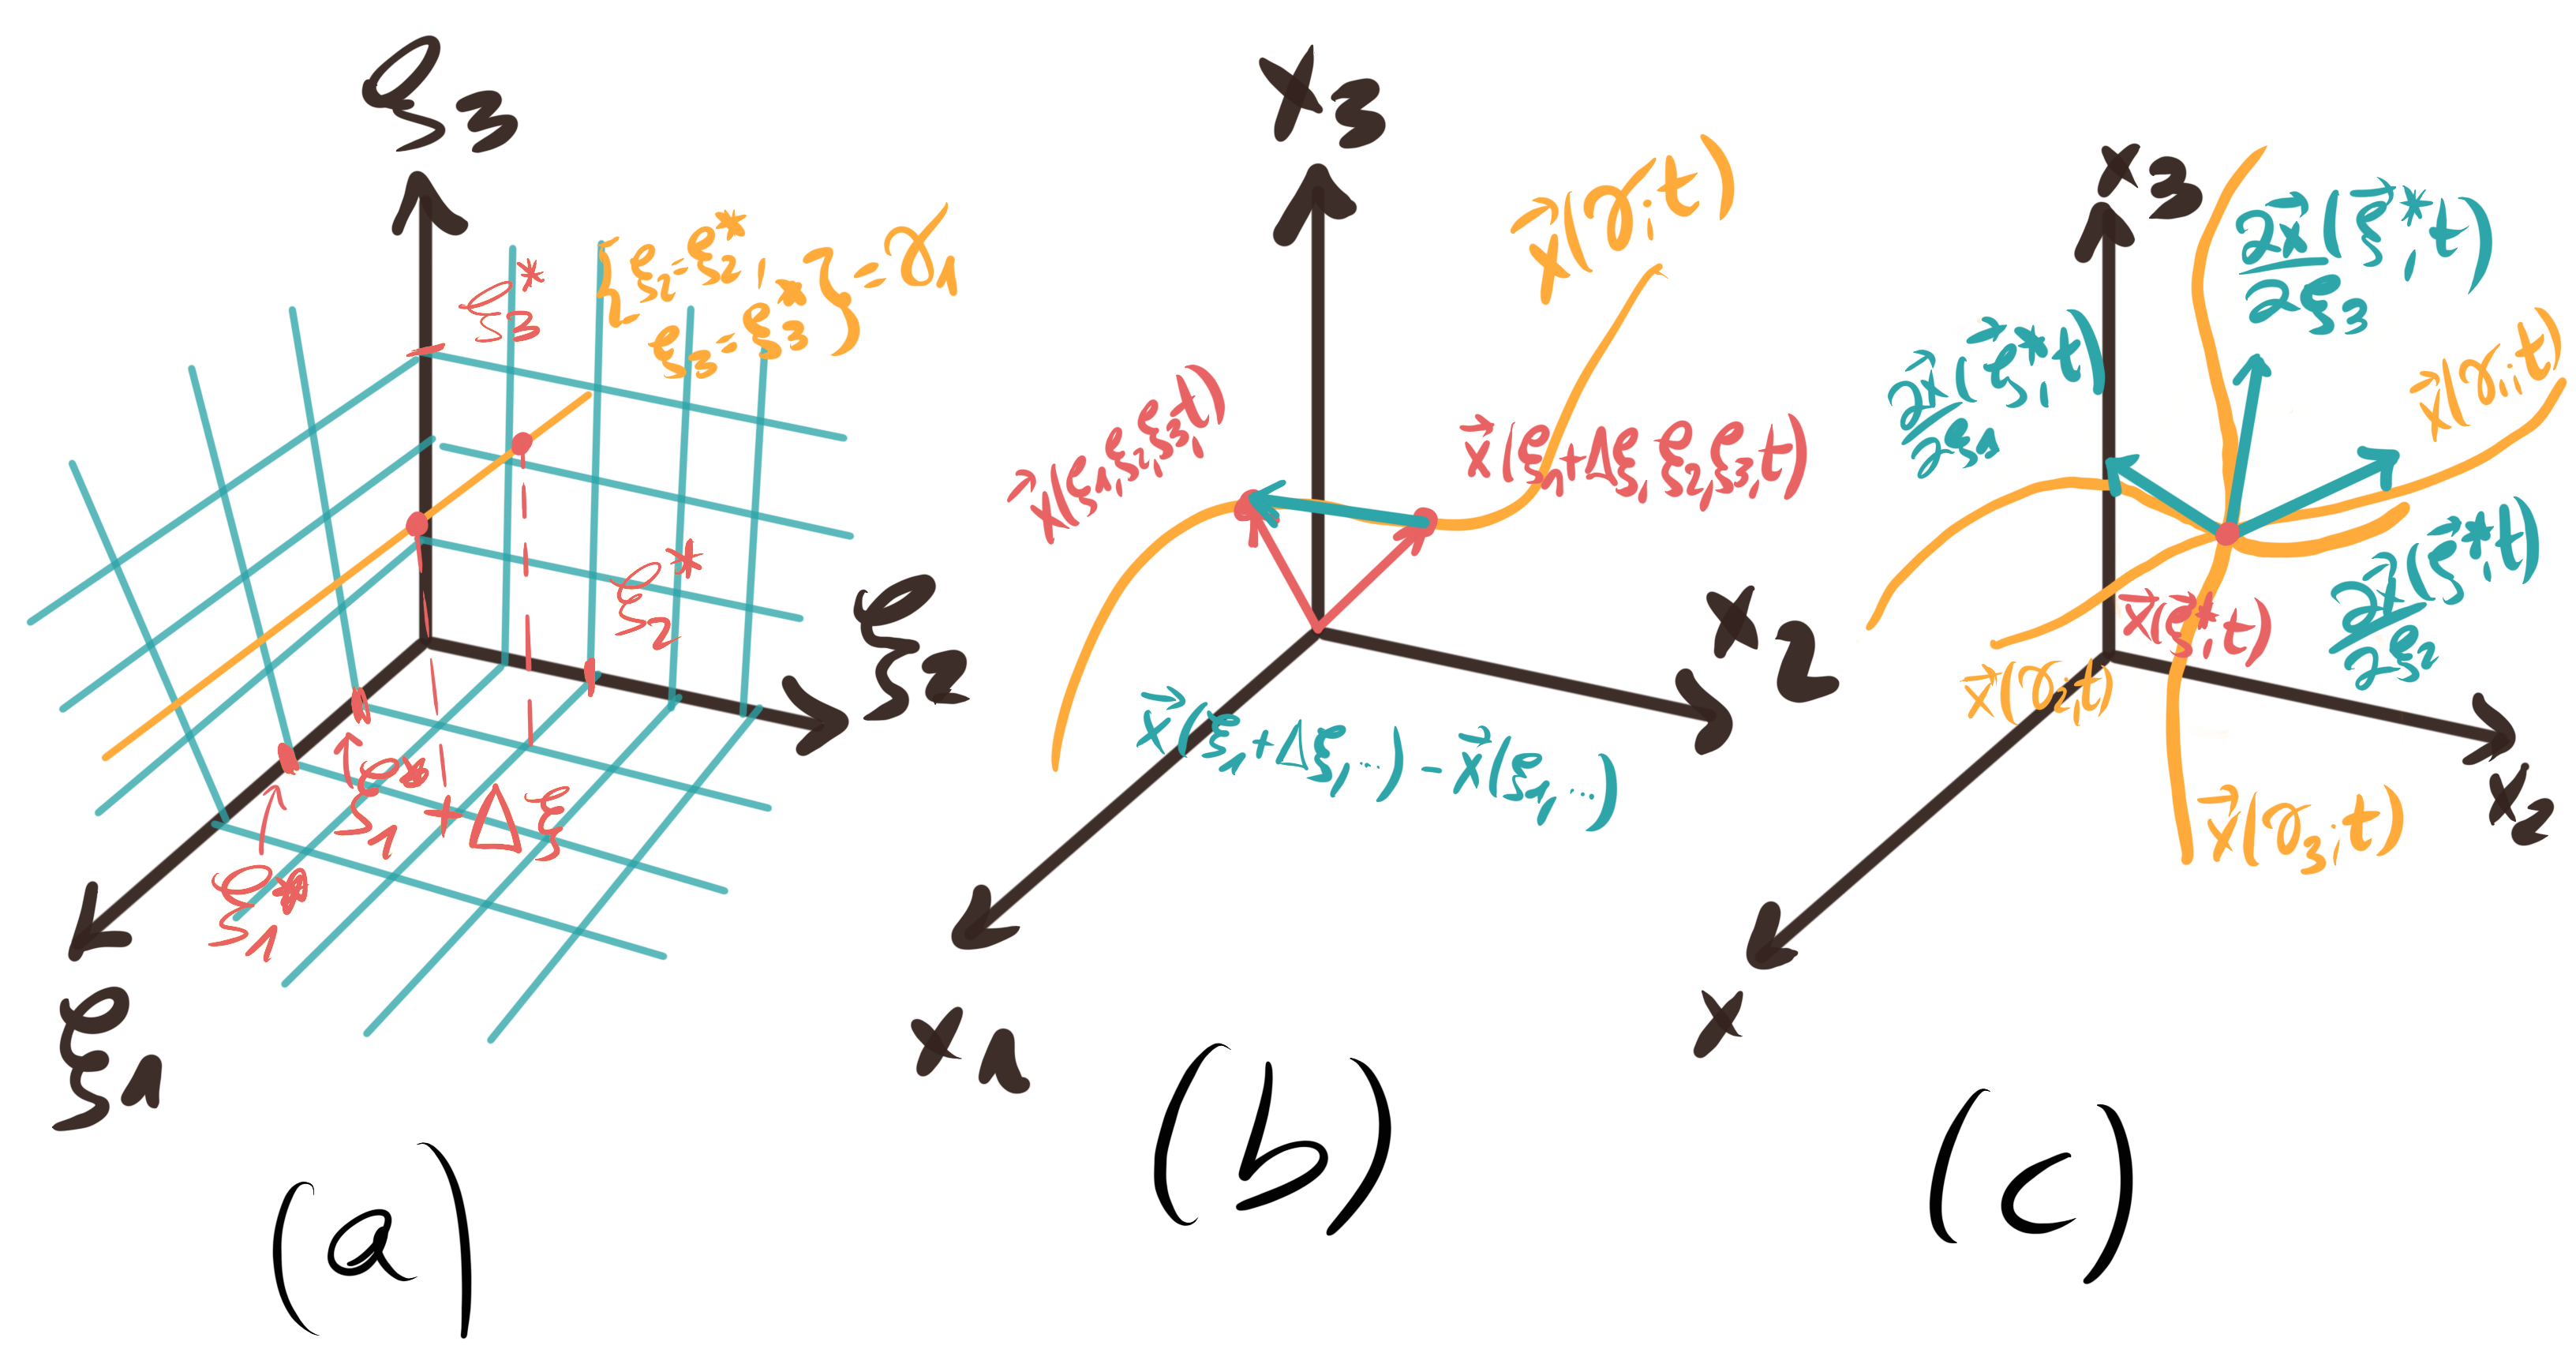 ξ₃
ξ₃*
{ξ₂=ξ₂*,
ξ₃=ξ₃*} = γ₁
ξ₂*
ξ₂
ξ₁* + Δξ
ξ₁*
ξ₁
(a)
x₃
x⃗(γ; t)
x⃗(ξ₁,ξ₂,ξ₃,t)
x⃗(ξ₁+Δξ, ξ₂,ξ₃,t)
x₂
x⃗(ξ₁+Δξ,...) - x⃗(ξ₁,...)
x₁
(b)
x₃
∂x⃗/∂ξ₃ (ξ⃗*,t)
∂x⃗/∂ξ₁ (ξ⃗*,t)
x⃗(γ₁;t)
∂x⃗/∂ξ₂ (ξ⃗*,t)
x⃗(ξ⃗*,t)
x⃗(γ₂,t)
x₂
x⃗(γ₃;t)
x
(c)